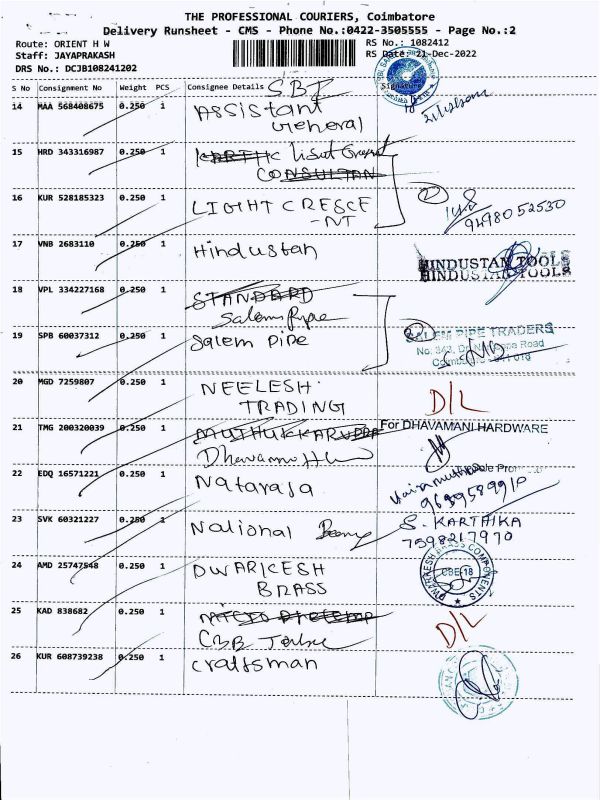 THE PROFESSIONAL COURIERS, Coimbatore
Delivery Runsheet - CMS - Phone No.:0422-3505555 - Page No.:2
Route: ORIENT H W
Staff: JAYAPRAKASH
DRS No.: DCJB108241202
RS No.: 1082412
RS Date: 21-Dec-2022
S No Consignment No Weight PCS Consignee Details SBI Signature
14 MAA 568408675 0.250 1 Assistant
General
15 HRD 343316987 0.250 1
CONSULTAN
16 KUR 528185323 0.250 1 LIGHT CRESCE
-NT
9498052530
17 VNB 2683110 0.250 1 Hindustan
HINDUSTAN TOOLS
HINDUSTAN TOOLS
18 VPL 334227168 0.250 1 STANDARD
Salem pipe
19 SPB 60037312 0.250 1 Salem Pipe
SALEM PIPE TRADERS
20 MGD 7259807 0.250 1 NEELESH
TRADING D/L
21 TMG 200320039 0.250 1 MUTHUKKARUPPA
For DHAVAMANI HARDWARE
22 EDQ 16571221 0.250 1 Nataraja
9659589910
23 SVK 60321227 0.250 1 National
S. KARTHIKA
7598217970
24 AMD 25747548 0.250 1 DWARKESH
BRASS
DWARKESH BRASS COMPONENTS
CBE-18
25 KAD 838682 0.250 1
D/L
26 KUR 608739238 0.250 1 Craftsman